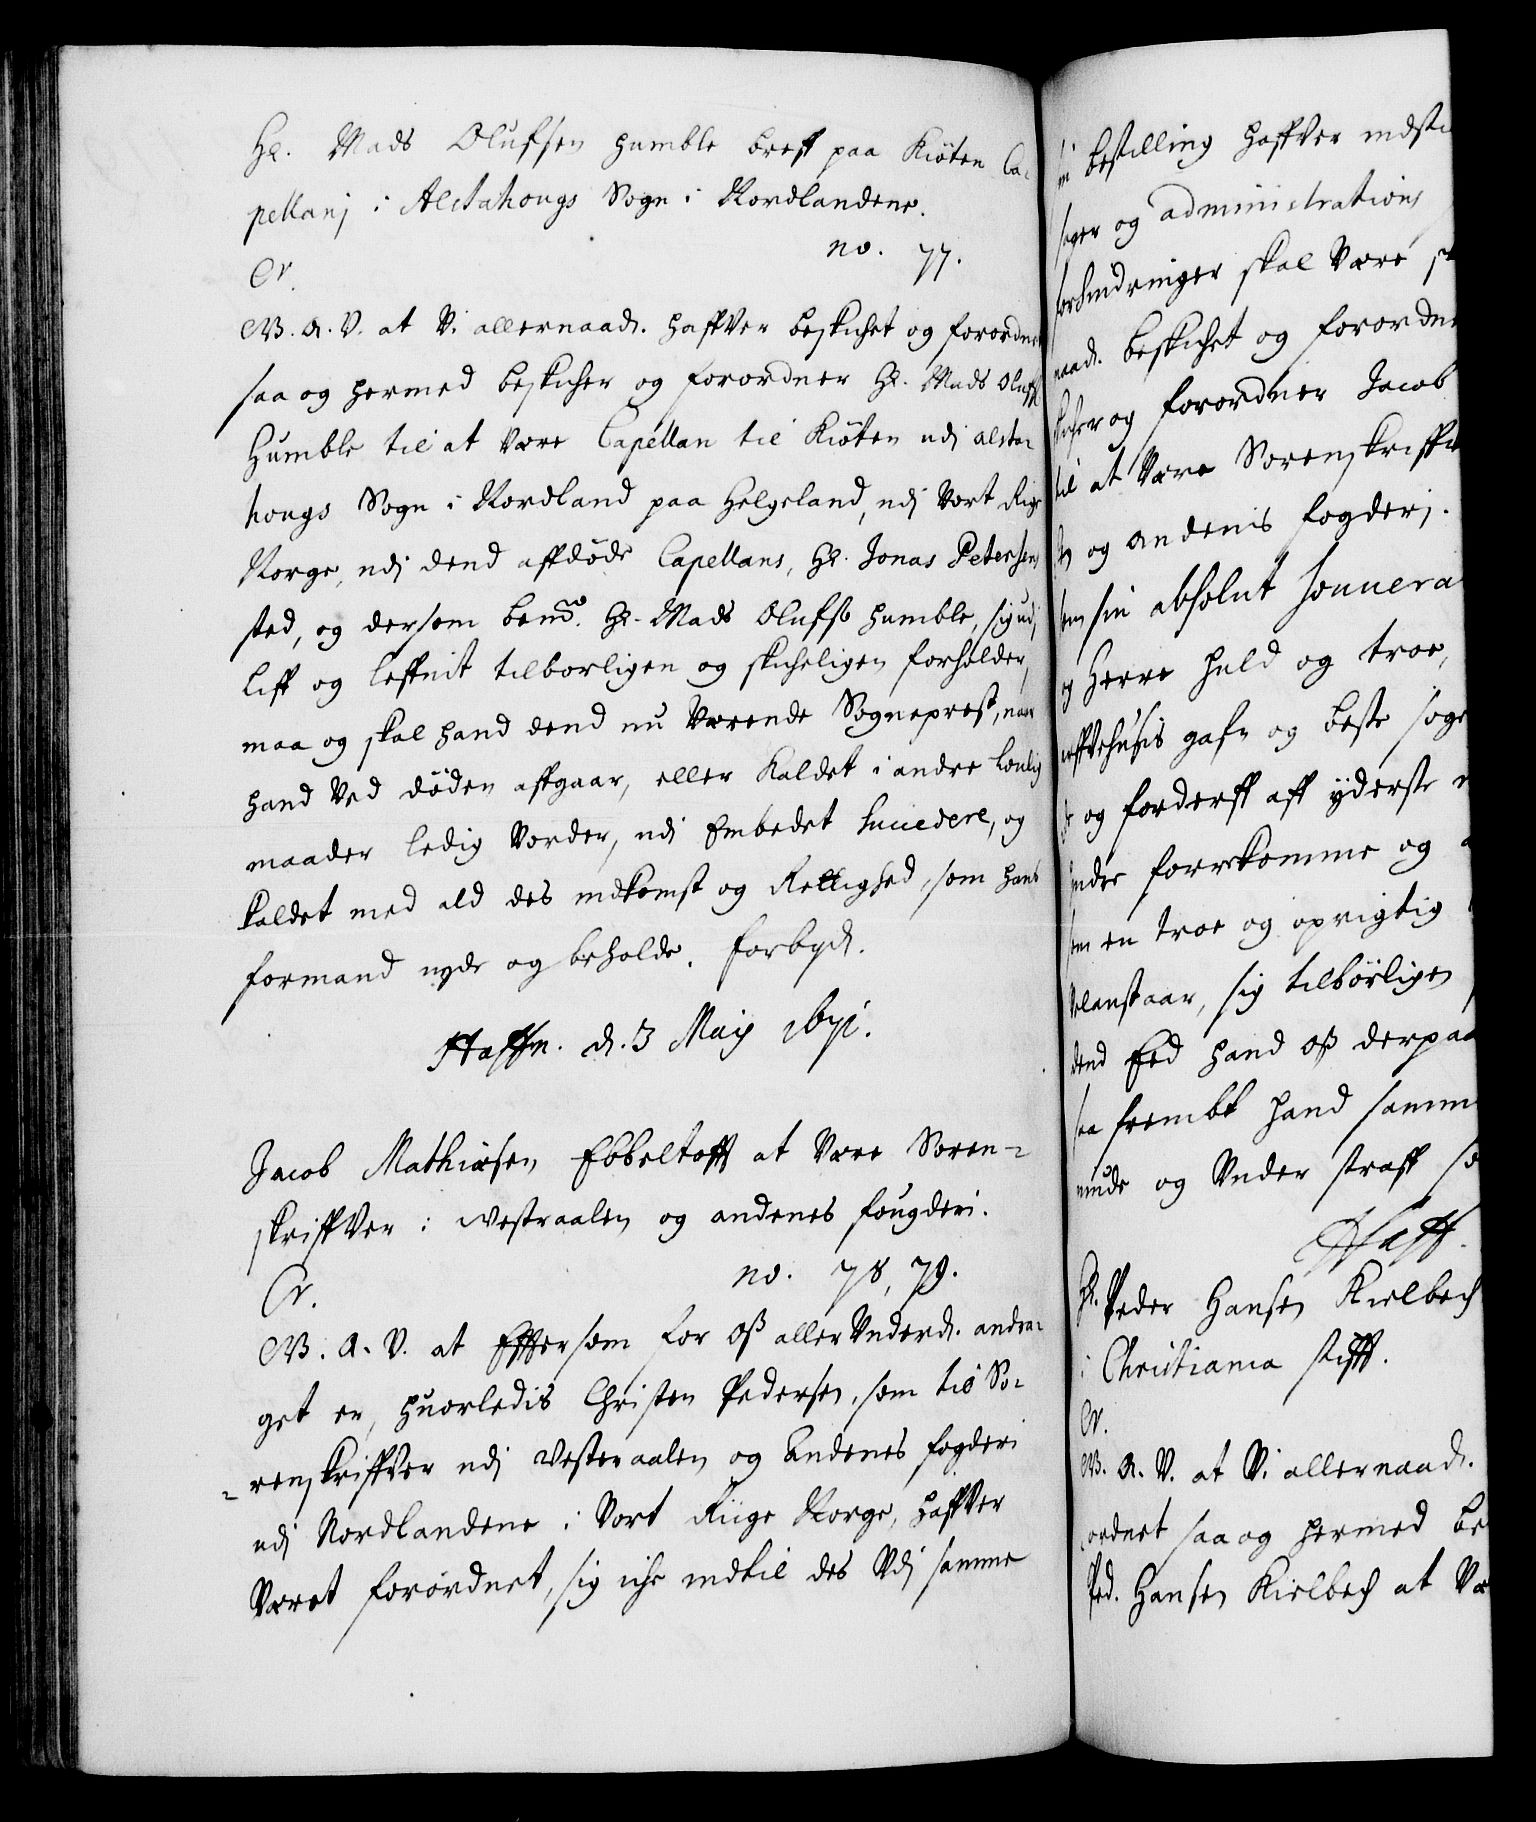 Hr. Mads Olufsen humble breff paa Kiöten Ca-
pellanj i Alstahougs Sogn i Nordlandene.
no. 77.
Cr.
W. A. V. at Vi allernaad. haffver beskichet og forordnet
saa og hermed beskicher og forordner Hr. Mads Olufs.
Humble til at være Capellan til Kiöten udj alsta-
hougs Sogn i Nordland paa Helgeland, udj Vort Rige
Norge, udj dend affdöde Capellans, Hr. Jonas Petersens
sted, og dersom bemte. Hr. Mads Olufss. humble, sig udj
liff og leffnit tilborligen og skicheligen forholder,
maa og skal hand dend nu Værende Sogneprest, naar
hand Ved döden affgaar, eller Kaldet i andre louligs
maader ledig Vorder, udj Embedet succedere, og
kaldet med ald des indkomst og Rettighed, som hans
formand nyde og beholde. forbyd.
Haffn. d. 3 Maij 1671.
Jacob Mathiasen Ebbeltofft at Være Soren-
skriffver i Westraalen og andenes fougderi.
no. 78, 79.
Cr.
W. A. V. at Effter som for oss aller Underd. andra-
get er, huorledis Christen Pedersen, som til So-
renskriffver udj Westeraalen og Andenes fogderi
udj Nordlandene i Vort Riige Norge, haffver
Veret forordnet, sig iche indtil des Udj samme
bestilling haffver indst
sager og administrations
forhindringer skal Være
naad. beskichet og forordne
skicher og forordner Jacob
til at Være Sorenskriffv
og andenis fogderj.
som sin absolut souvera
og Herre huld og troe,
arffvehusis gafn og beste søge
og forderff aff yderste
hindre forrekomme og
som en troe og oprigtig
Velanstaar, sig tilbörligen
dend Eed hand oss derpaa
saa frembt hand samme
niude og Under straff so
Haff.
Hr. Peder Hansen Kielbech
i Christiania stifft.
Cr.
W. A. V. at Vi allernaad.
ordnet saa og hermed be
Ped. Hansen Kielbech at Væ